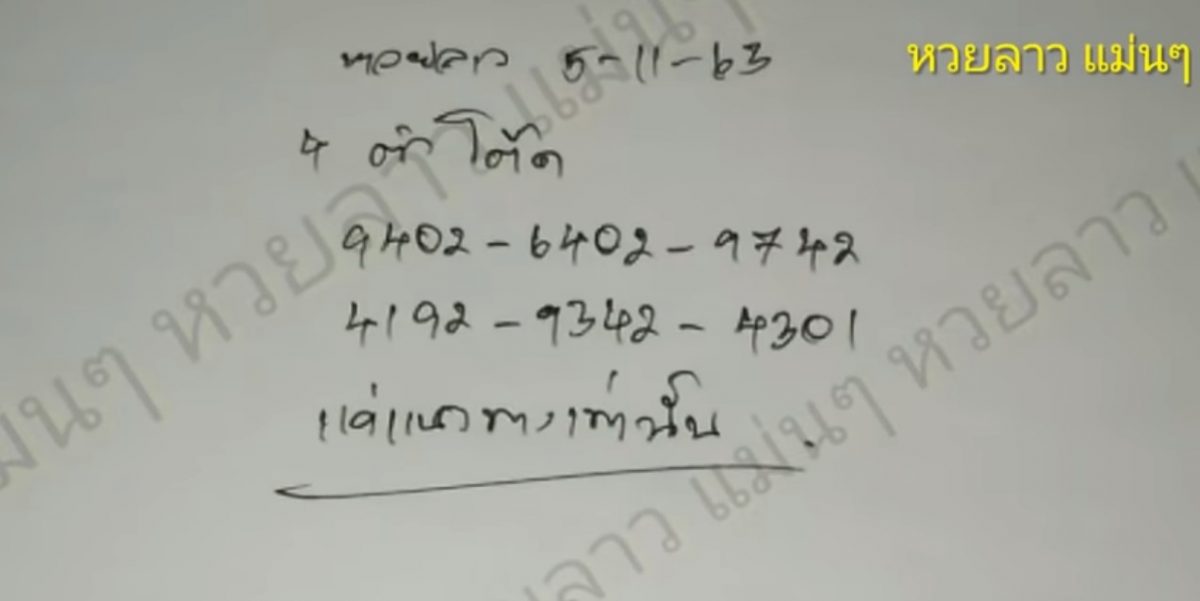 หวยลาว 5-11-63
หวยลาว แม่นๆ
4 ตัว โต๊ด
9402 - 6402 - 9742
4192 - 9342 - 4301
แค่แนวทางเท่านั้น
หวยลาว แม่นๆ
หวยลาว แม่นๆ